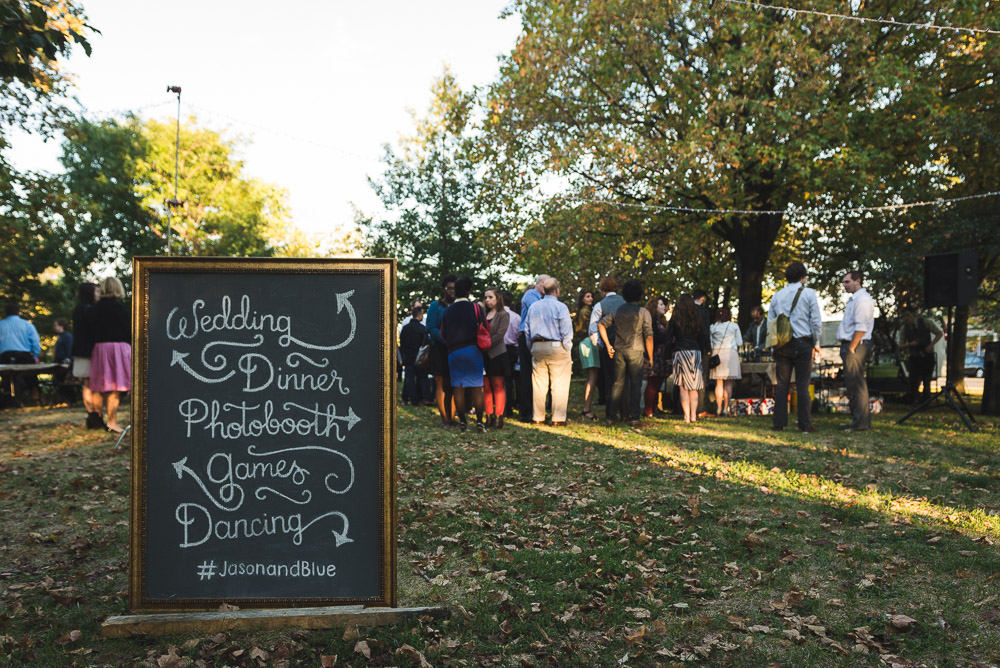 Wedding
Dinner
Photobooth
Games
Dancing
#JasonandBlue